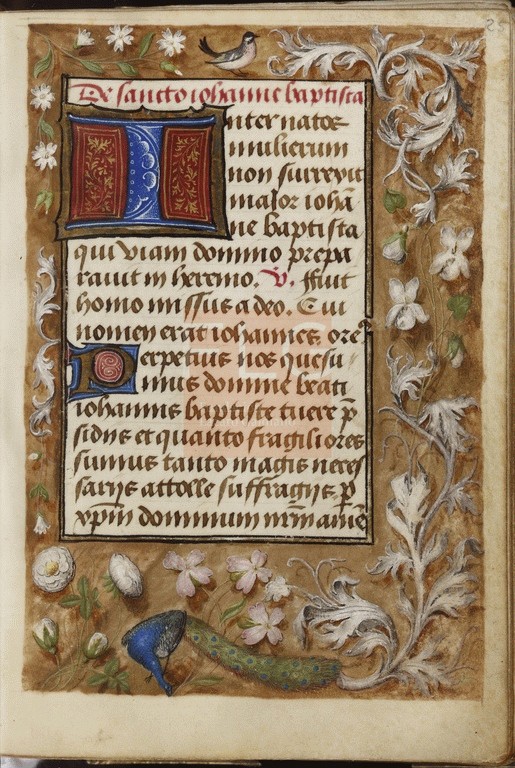 De sancto iohanne baptista
Inter natos
mulierum
non surrexit
maior iohā
ne baptista
qui viam domino prepa
rauit in heremo. V. ffuit
homo missus a deo. Cui
nomen erat iohannes ore
Perpetuis nos quesu
mus domine beati
iohannis baptiste tuere p
sidijs et quanto fragiliores
sumus tanto magis neces
sarijs attolle suffragijs p
xpm̄ dominum nr̄m amē